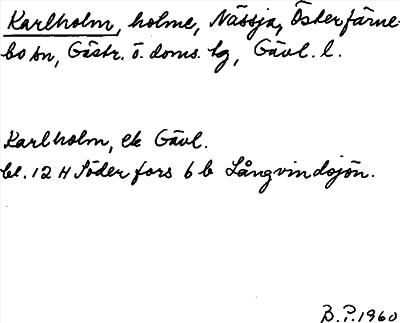 Karlholm, holme, Nässja, Österfärne-
bo sn, Gästr. ö. doms. hg, Gävl. l.
Karlholm, ek Gävl.
bl. 12 H Söderfors 6 b Långvindsjön.
B. P. 1960